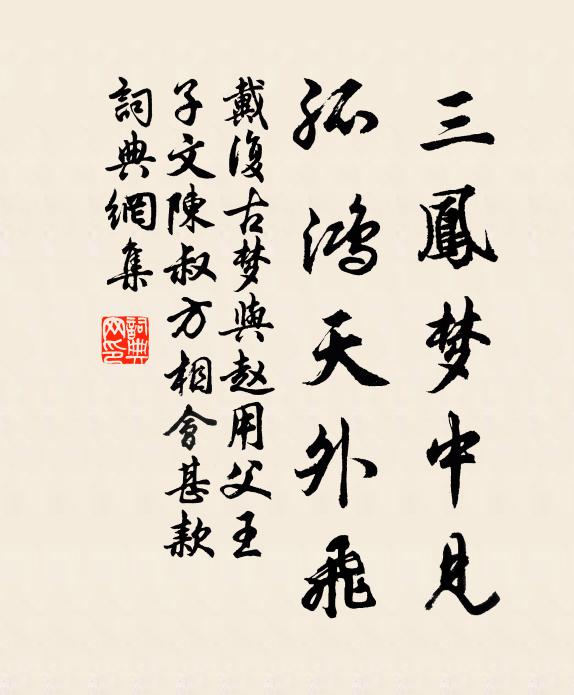 三鳳梦中見
孤鴻天外飛
戴復古梦與赵用父王
子文陳叔方相會甚款
詞典網集
詞典
网印